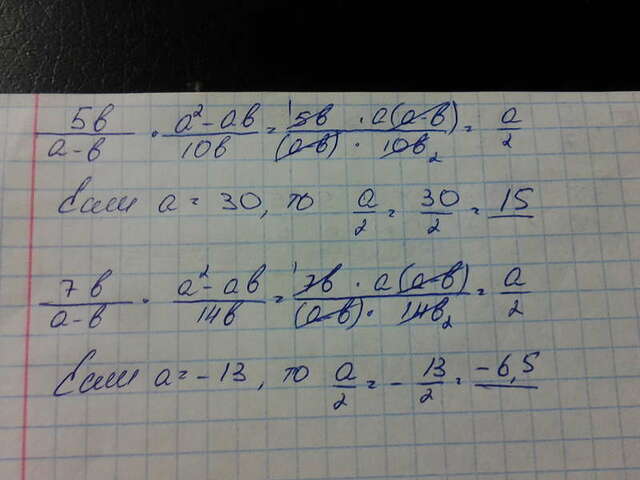 5в/(а-в) · (а²-ав)/10в = ¹5в · а(а-в)/((а-в) · 10в₂) = а/2
Если а = 30, то а/2 = 30/2 = 15
7в/(а-в) · (а²-ав)/14в = ¹7в · а(а-в)/((а-в) · 14в₂) = а/2
Если а = -13, то а/2 = -13/2 = -6,5